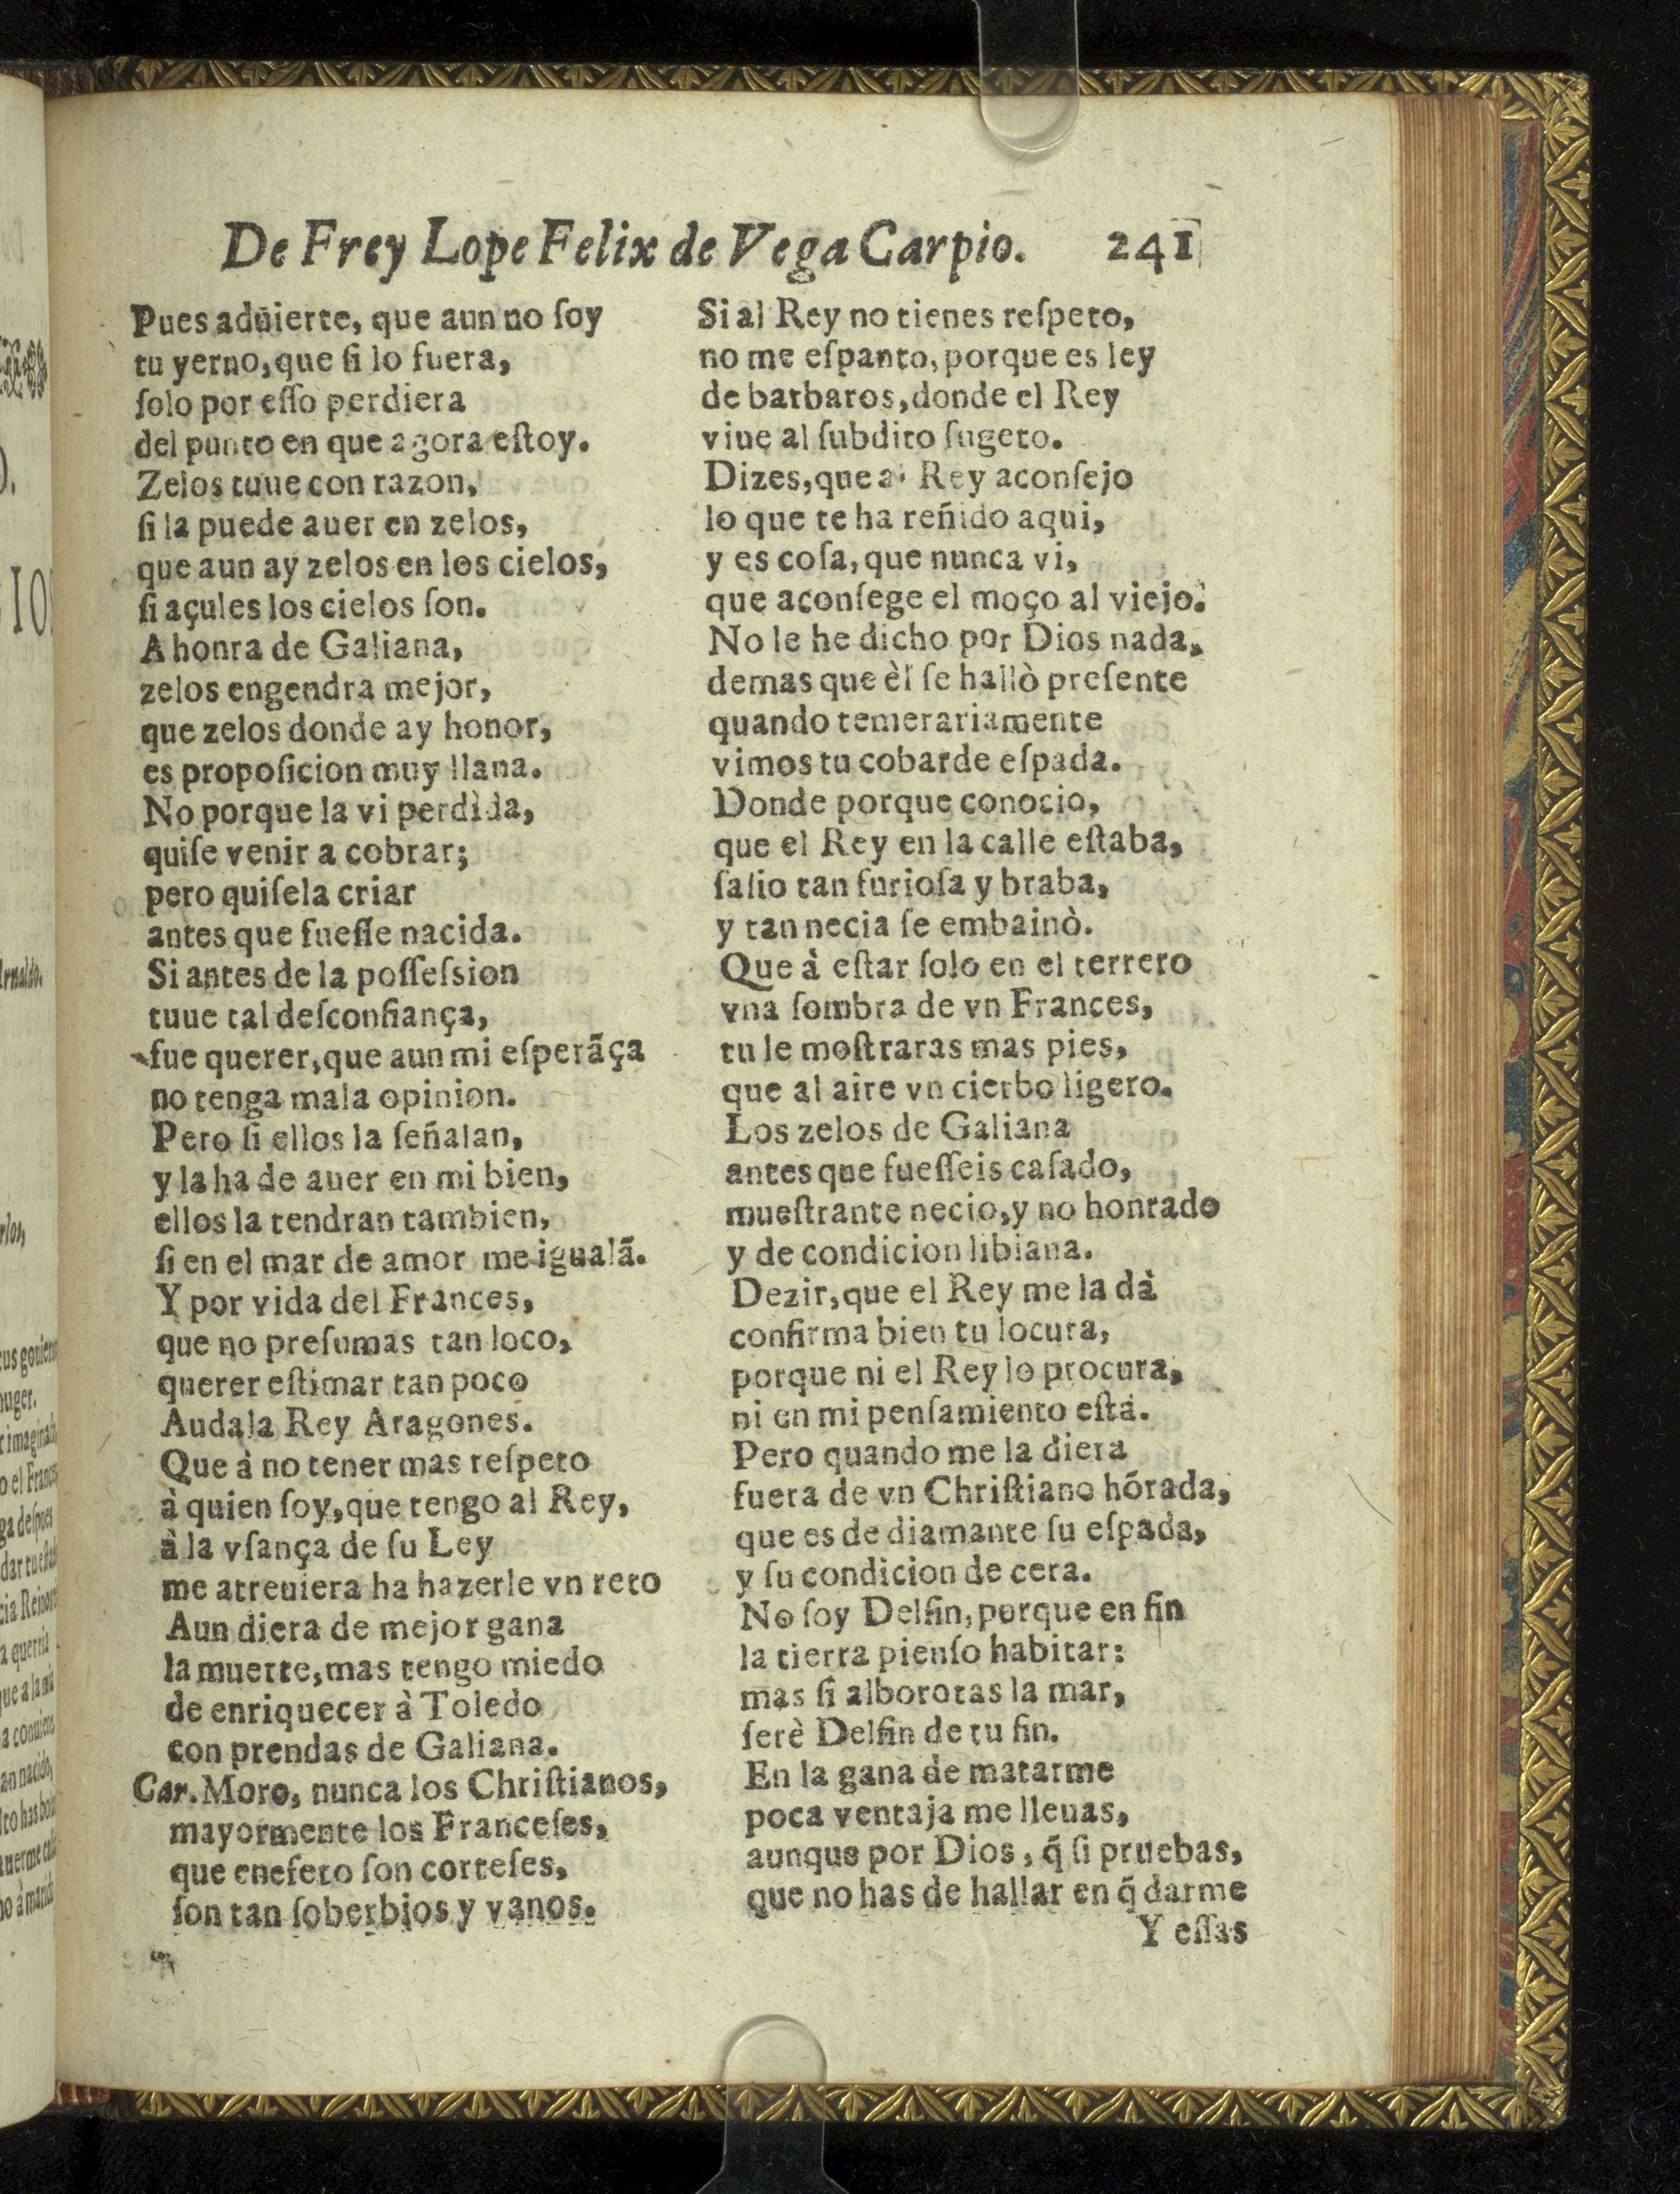 De Frey Lope Felix de Vega Carpio. 241
Pues aduierte, que aun no ſoy
tu yerno, que ſi lo fuera,
ſolo por eſſo perdiera
del punto en que agora eſtoy.
Zelos tuue con razon,
ſi la puede auer en zelos,
que aun ay zelos en los cielos,
ſi açules los cielos ſon.
A honra de Galiana,
zelos engendra mejor,
que zelos donde ay honor,
es propoſicion muy llana.
No porque la vi perdìda,
quiſe venir a cobrar;
pero quiſela criar
antes que fueſſe nacida.
Si antes de la poſſeſsion
tuue tal deſconfiança,
fue querer, que aun mi eſperãça
no tenga mala opinion.
Pero ſi ellos la ſeñalan,
y la ha de auer en mi bien,
ellos la tendran tambien,
ſi en el mar de amor me igualã.
Y por vida del Frances,
que no preſumas tan loco,
querer eſtimar tan poco
Audala Rey Aragones.
Que à no tener mas reſpeto
à quien ſoy, que tengo al Rey,
à la vſança de ſu Ley
me atreuiera ha hazerle vn reto
Aun diera de mejor gana
la muerte, mas tengo miedo
de enriquecer à Toledo
con prendas de Galiana.
Car. Moro, nunca los Chriſtianos,
mayormente los Franceſes,
que enefeto ſon corteſes,
ſon tan ſoberbios y vanos.
Si al Rey no tienes reſpeto,
no me eſpanto, porque es ley
de barbaros, donde el Rey
viue al ſubdito ſugeto.
Dizes, que al Rey aconſejo
lo que te ha reñido aqui,
y es coſa, que nunca vi,
que aconſege el moço al viejo.
No le he dicho por Dios nada,
demas que èl ſe hallò preſente
quando temerariamente
vimos tu cobarde eſpada.
Donde porque conocio,
que el Rey en la calle eſtaba,
ſalio tan furioſa y braba,
y tan necia ſe embainò.
Que à eſtar ſolo en el terrero
vna ſombra de vn Frances,
tu le moſtraras mas pies,
que al aire vn cierbo ligero.
Los zelos de Galiana
antes que fueſſeis caſado,
mueſtrante necio, y no honrado
y de condicion libiana.
Dezir, que el Rey me la dà
confirma bien tu locura,
porque ni el Rey lo procura,
ni en mi penſamiento eſtá.
Pero quando me la diera
fuera de vn Chriſtiano hõrada,
que es de diamante ſu eſpada,
y ſu condicion de cera.
No ſoy Delfin, porque en fin
la tierra pienſo habitar:
mas ſi alborotas la mar,
ſerè Delfin de tu fin.
En la gana de matarme
poca ventaja me lleuas,
aunque por Dios, q̃ ſi pruebas,
que no has de hallar en q̃ darme
Y eſſas